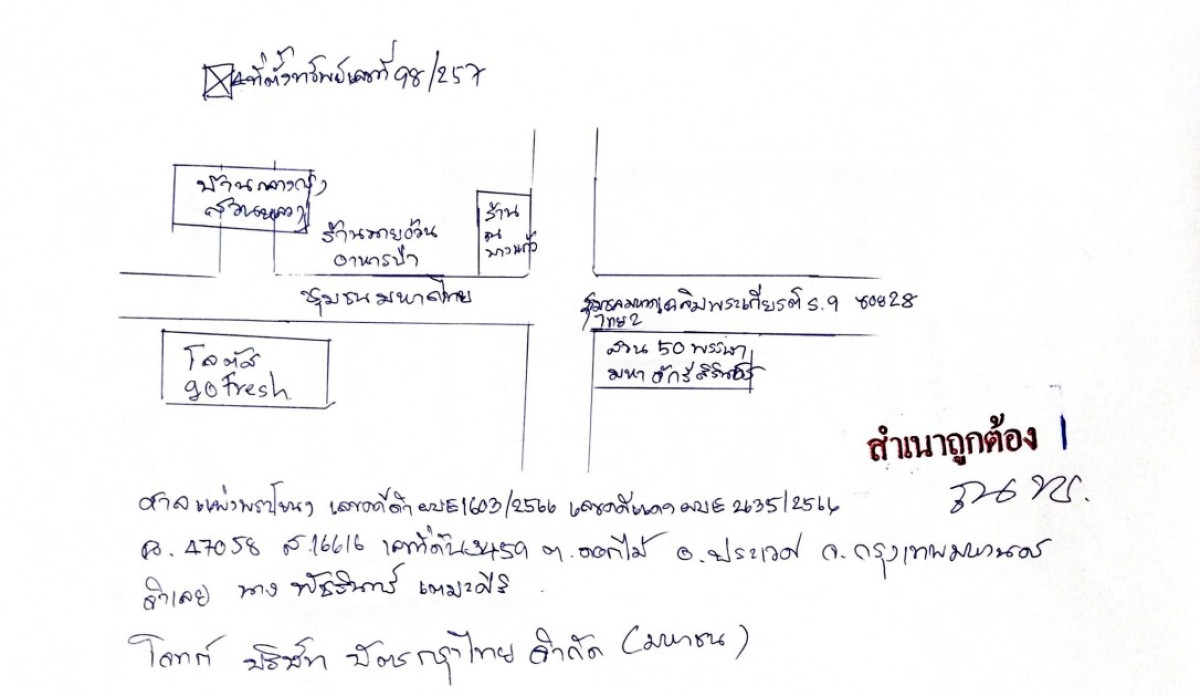 ที่ตั้งทรัพย์เลขที่ 98/257
บ้านกลางกรุง
สวนหลวง
ร้านนายอ้วน
อาหารป่า
ร้าน
ณ
ชุมชนมหาดไทย
ชุมชนมหาดไทย 2
เฉลิมพระเกียรติ ร.9 ซอย 28
โลตัส
go fresh
สวน 50 พรรษา
มหาจักรีสิรินธร
สำเนาถูกต้อง
ศาลแพ่งพระโขนง เลขคดีดำ ผบE1603/2566 เลขคดีแดง ผบE 2635/2566
ฉ. 47058 ส.16616 เลขที่ดิน 3459 ต.ดอกไม้ อ.ประเวศ จ.กรุงเทพมหานคร
จำเลย นาง
โจทก์ บริษัท บัตรกรุงไทย จำกัด (มหาชน)